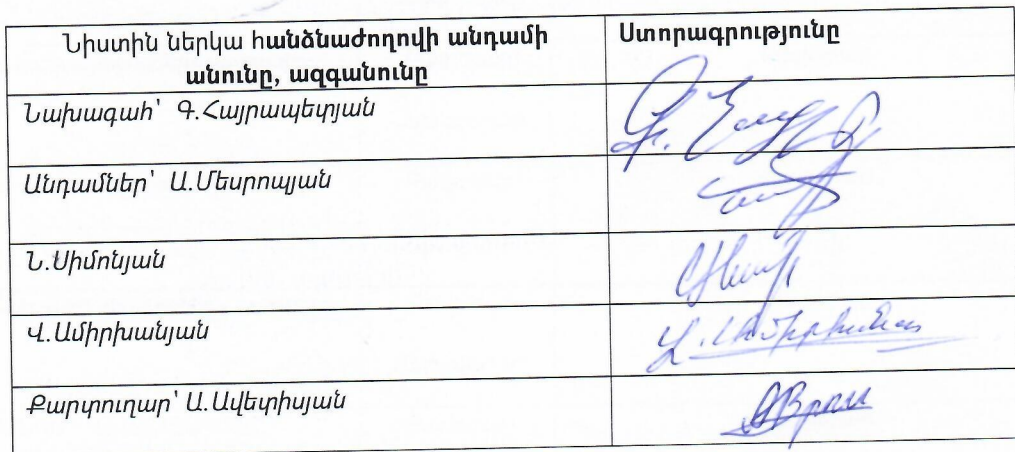 Նիստին ներկա հանձնաժողովի անդամի
անունը, ազգանունը
Ստորագրությունը
Նախագահ՝ Գ.Հայրապետյան
Անդամներ՝ Ա.Մեսրոպյան
Ն.Սիմոնյան
Վ.Ամիրխանյան
Քարտուղար՝ Ա.Ավետիսյան